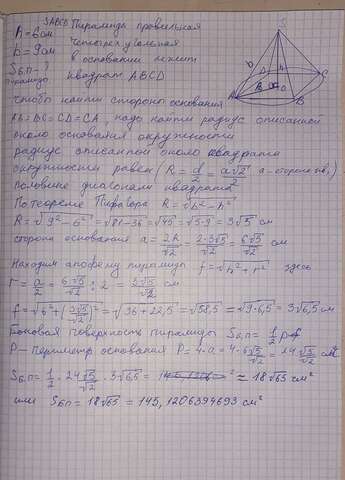 SABCD Пирамида правильная
h = 6 см четырех угольная
b = 9 см в основании лежит
Sбп - ? квадрат ABCD
пирамиды
чтобы найти сторону основания
AB = BC = CD = CA, надо найти радиус описанной
около основания окружности
радиус описанной около квадрата
окружности равен (R = d/2 = a√2/2 a - сторона кв.)
половине диагонали квадрата
По теореме Пифагора R = √b² - h²
R = √9² - 6² = √81-36 = √45 = √5·9 = 3√5 см
сторона основания a = 2R/√2 = 2·3√5/√2 = 6√5/√2 см
Находим апофему пирамиды f = √h² + r² здесь
r = a/2 = 6√5/√2 : 2 = 3√5/√2 см
f = √6² + (3√5/√2)² = √36 + 22,5 = √58,5 = √9·6,5 = 3√6,5 см
Боковая поверхность пирамиды Sбп = 1/2 p·f
P - периметр основания P = 4·a = 4·6√5/√2 = 24√5/√2 см
Sбп = 1/2 · 24√5/√2 · 3√6,5 = 18√65 см²
или Sбп = 18√65 = 145,1206394693 см²
S
b
h
D
C
A
B
O